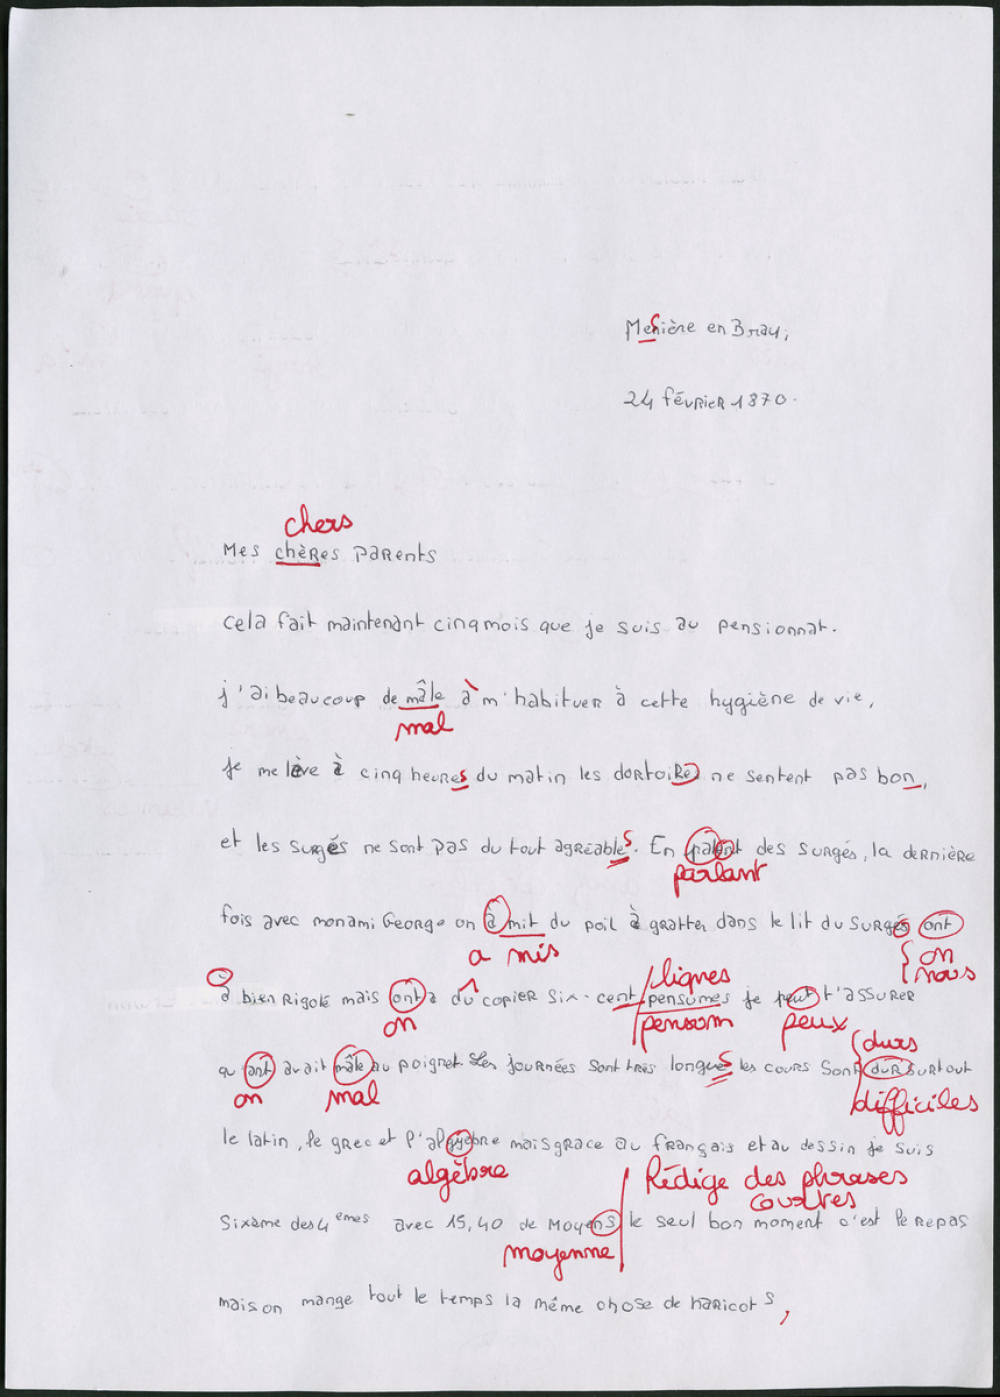 Mesière en Bray,
24 février 1870.
chers
Mes chères parents
cela fait maintenant cinq mois que je suis au pensionnat.
j'ai beaucoup de mâle à m'habituer à cette hygiène de vie,
mal
je me lève à cinq heures du matin les dortoire ne sentent pas bon,
et les surgés ne sont pas du tout agréables. En palent des surgés, la dernière
parlant
fois avec mon ami George on à mit du poil à gratter dans le lit du surgés ont
a mis
on
nous
lignes
à bien rigolé mais ont a dû copier six-cent pensumes je peut t'assurer
on
pensum
peux
durs
qu'ont avait mâle au poignet. Les journées sont très longues les cours sont dur surtout
on
mal
difficiles
le latin, le grec et l'algyèbre mais grace au français et au dessin je suis
algèbre
Rédige des phrases
courtes
sixème des 4 èmes avec 15,40 de moyens le seul bon moment c'est le repas
moyenne
mais on mange tout le temps la même chose de haricots,